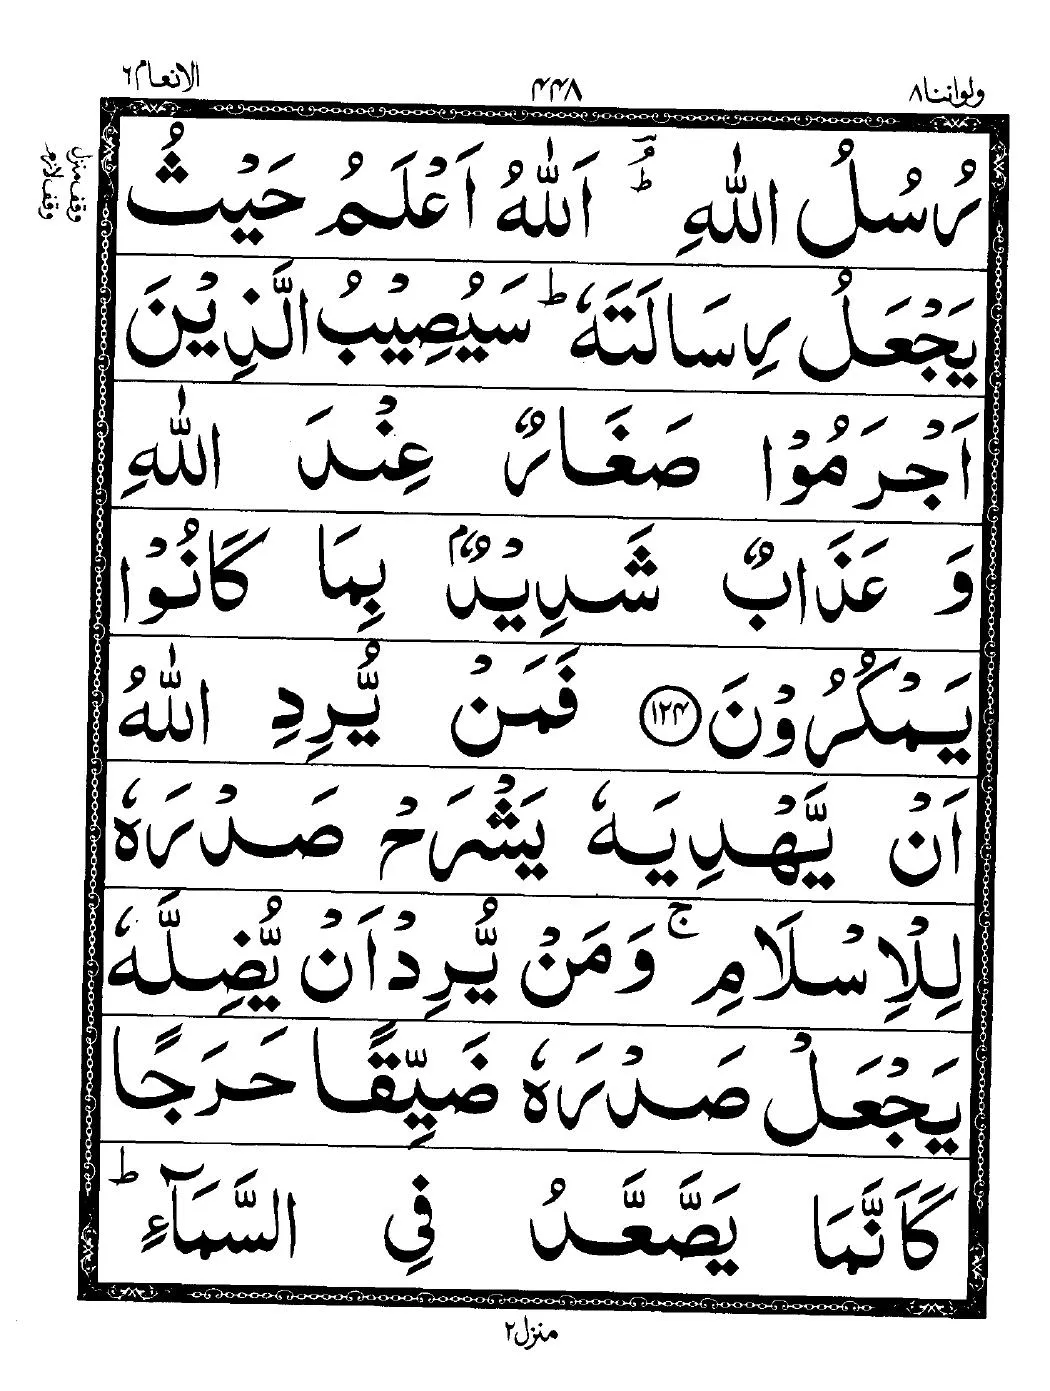 ولواننا۸ ۴۴۸ الانعام٦
وقف منزل
وقف لازم
رُسُلُ اللّٰهِ ؕۘ اَللّٰهُ اَعْلَمُ حَيْثُ
يَجْعَلُ رِسَالَتَهٗ ؕ سَيُصِيْبُ الَّذِيْنَ
اَجْرَمُوْا صَغَارٌ عِنْدَ اللّٰهِ
وَ عَذَابٌ شَدِيْدٌۢ بِمَا كَانُوْا
يَمْكُرُوْنَ ۱۲۴ فَمَنْ يُّرِدِ اللّٰهُ
اَنْ يَّهْدِيَهٗ يَشْرَحْ صَدْرَهٗ
لِلْاِسْلَامِ ۚ وَمَنْ يُّرِدْ اَنْ يُّضِلَّهٗ
يَجْعَلْ صَدْرَهٗ ضَيِّقًا حَرَجًا
كَاَنَّمَا يَصَّعَّدُ فِي السَّمَآءِ ؕ
منزل۲